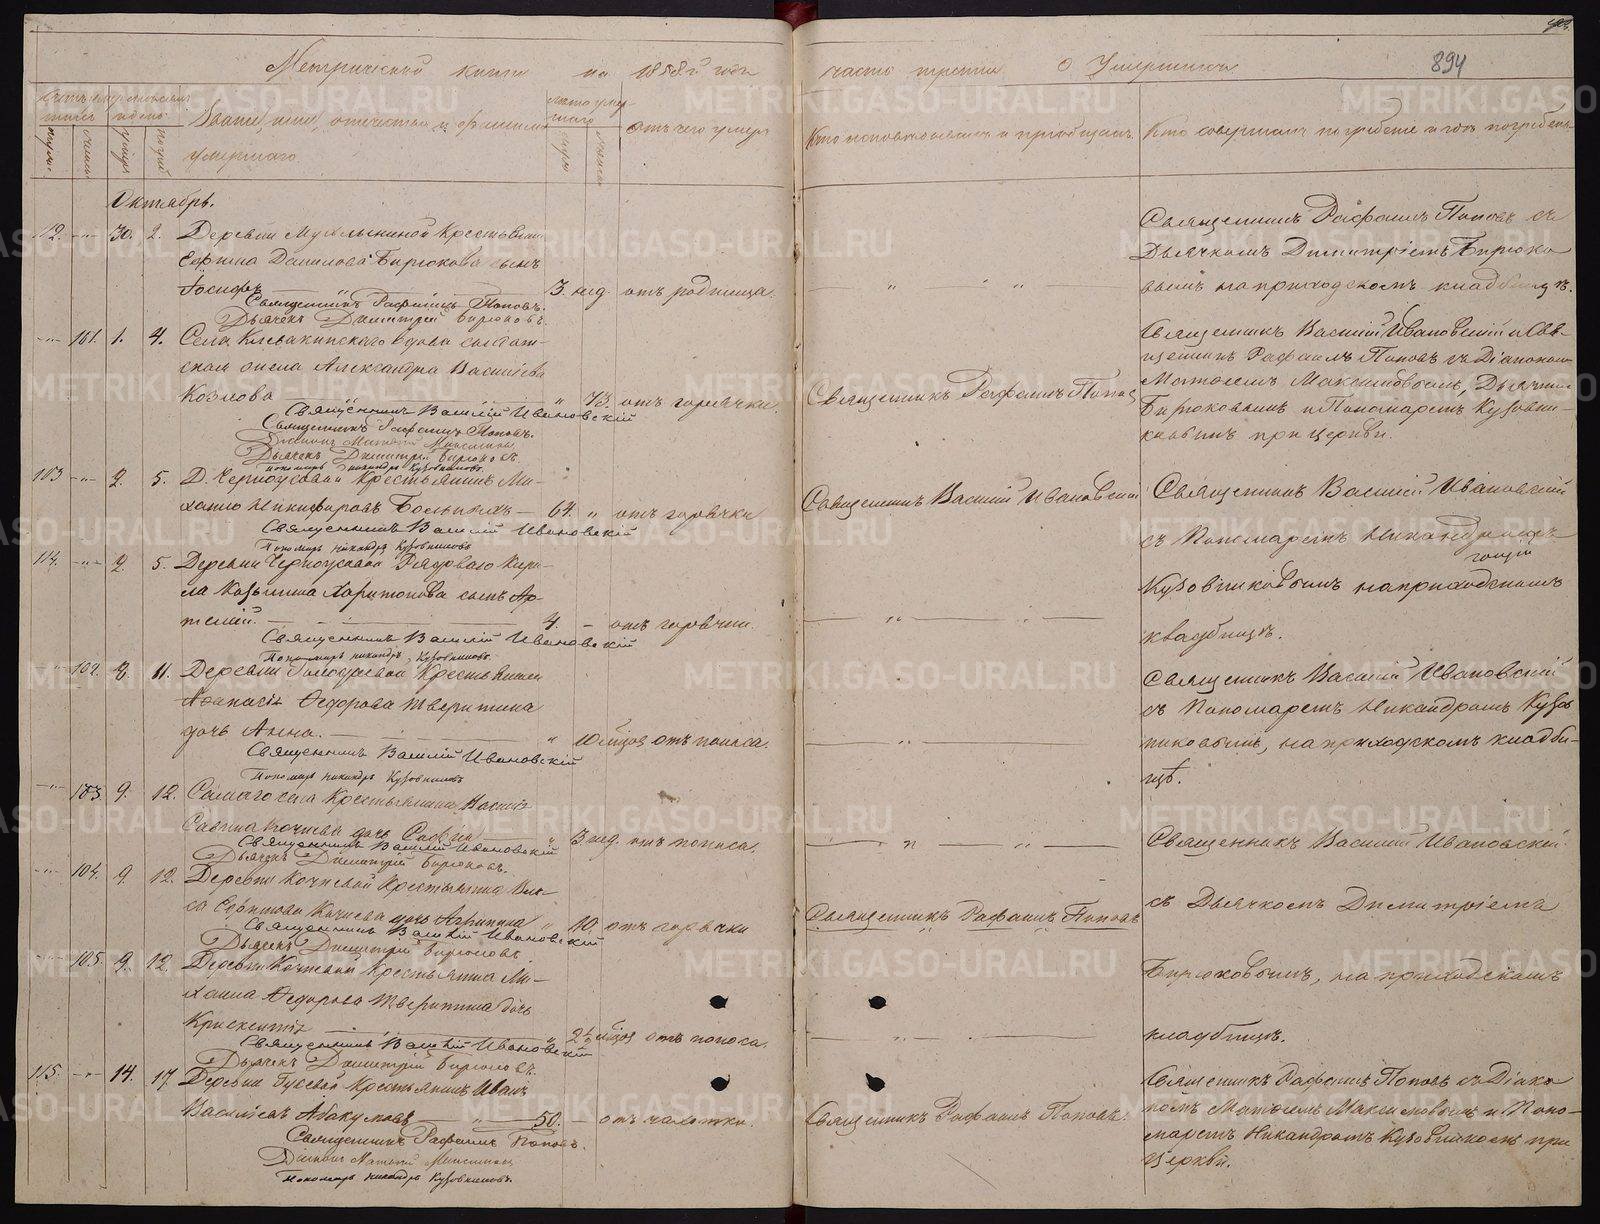 Метрической книги на 1858й годъ
часть третия О Умершихъ
894
Званіе, имя, отчество и фамилія
умершаго.
отъ чего умеръ
Кто исповѣдывалъ и пріобщалъ.
Кто совершалъ погребеніе и гдѣ погребены
Октябрь.
12. -"- 30. 2. Деревни Крестьянина
Данилова Бирюкова сынъ
Іосифъ 3. нед. отъ родимца.
Священникъ Рафаилъ Поповъ.
Дьячекъ Димитрій Бирюковъ.
Священникъ Рафаилъ Поповъ съ
Дьячкомъ Димитріемъ Бирюко
вымъ на приходскомъ кладбищѣ.
-"- 101. 1. 4. Села Клевакинскаго вдова солдат-
ская Александра Васильева
Козлова " 73. отъ горячки.
Священникъ Василій Ивановскій
Священникъ Рафаилъ Поповъ.
Діаконъ Матвей Максимовъ
Дьячекъ Димитрій Бирюковъ.
Пономарь Никандръ Кузовниковъ.
Священникъ Рафаилъ Поповъ
Священникъ Василій Ивановскій и Свя-
щенникъ Рафаилъ Поповъ съ Діакономъ
Матвеемъ Максимовымъ, Дьячкомъ
Бирюковымъ и Пономаремъ Кузовни-
ковымъ при церкви.
113 -"- 2. 5. Д. Черноусовой Крестьянинъ Ми-
хаилъ Никифоровъ Большихъ - 64. " отъ горячки
Священникъ Василій Ивановскій
Пономарь Никандръ Кузовниковъ
Священникъ Василій Ивановскій
Священникъ Василій Ивановскій
съ Пономаремъ Никандромъ
Кузовниковымъ на приходскомъ
кладбищѣ.
114. -"- 2. 5. Деревни Черноусовой Рядоваго Кири-
ла Козьмина Харитонова сынъ Ар-
темій. 4. - отъ горячки.
Священникъ Василій Ивановскій
Пономарь Никандръ Кузовниковъ.
" 102. 8. 11. Деревни Крестьянина
Афанасія Федорова Тверитина
дочь Анна. " 10 мѣсяц отъ поноса.
Священникъ Василій Ивановскій
Пономарь Никандръ Кузовниковъ
Священникъ Василій Ивановскій
съ Пономаремъ Никандромъ Кузов
никовымъ, на приходскомъ кладби-
щѣ.
-"- 103. 9. 12. Самаго села Крестьянина Василія
Савина Кочнева дочь Софія " 3 нед. отъ поноса.
Священникъ Василій Ивановскій
Дьячекъ Димитрій Бирюковъ.
Священникъ Василій Ивановскій
съ Дьячкомъ Димитріемъ
Бирюковымъ, на приходскомъ
кладбищѣ.
-"- 104. 9. 12. Деревни Кочневой Крестьянина
Кочнева дочь Агрипина " 10. отъ горячки
Священникъ Василій Ивановскій
Дьячекъ Димитрій Бирюковъ
Священникъ Рафаилъ Поповъ
" 105. 9. 12. Деревни Кочневой Крестьянина Ми-
хаила Федорова Тверитина дочь
Крискентія " 2½ мѣсяц отъ поноса.
Священникъ Василій Ивановскій
Дьячекъ Димитрій Бирюковъ.
115. -"- 14. 17. Деревни Гусевой Крестьянинъ Иванъ
Васильевъ Абакумовъ 50. - отъ чахотки.
Священникъ Рафаилъ Поповъ.
Діаконъ Матвей Максимовъ
Пономарь Никандръ Кузовниковъ.
Священникъ Рафаилъ Поповъ.
Священникъ Рафаилъ Поповъ съ Діако
номъ Матвеемъ Максимовымъ и Поно-
маремъ Никандромъ Кузовниковымъ при
Церкви.
METRIKI.GASO-URAL.RU